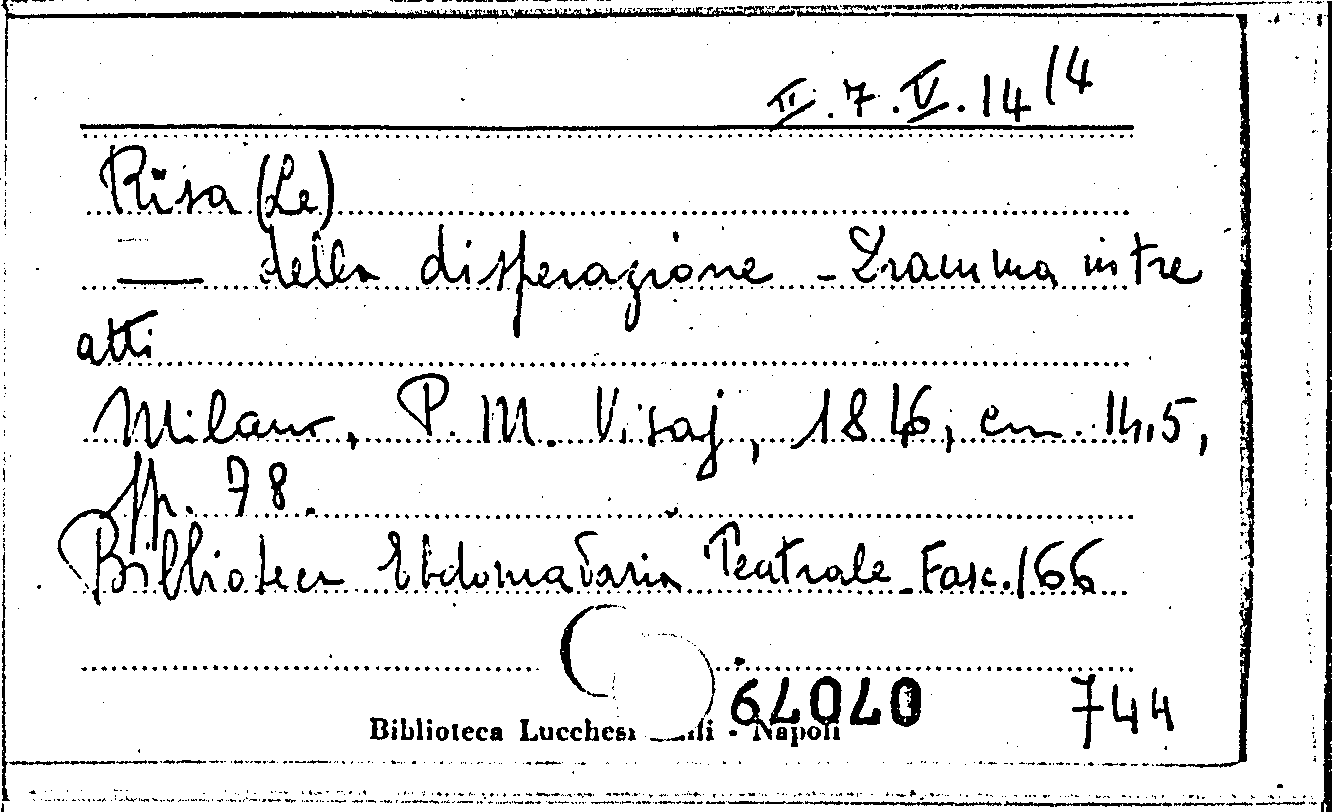 II. 7. V. 14/4
Risa (Le)
— della disperazione - Dramma in tre
atti
Milano, P. M. Visaj, 1846, cm. 14,5,
pp. 78.
Biblioteca Ebdomadaria Teatrale Fasc. 166
64070 744
Biblioteca Lucchesi - Napoli